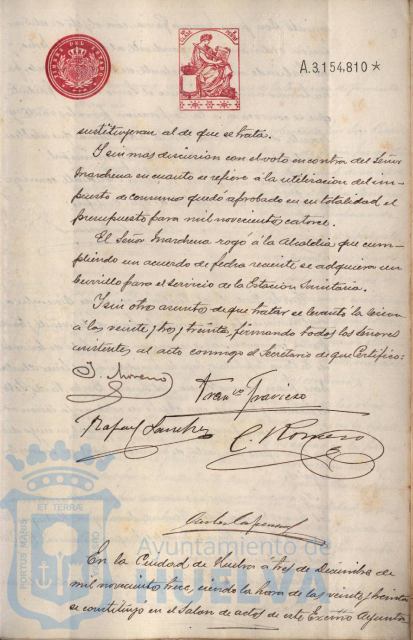 TIMBRE DEL ESTADO
A.3.154.810 *
sustituyeran al de que se trata.
I sin mas discusion con el voto en contra del Señor
Marchena en cuanto se refiere á la utilizacion del im-
puesto de consumos quedó aprobado en su totalidad el
presupuesto para mil novecientos catorce.
El Señor Marchena rogo á la Alcaldia que cum-
pliendo un acuerdo de fecha reciente se adquiera un
burrillo para el servicio de la Estacion Sanitaria.
I sin otro asunto de que tratar se levanto la sesion
á las veinte y tres y treinta, firmando todos los señores
asistentes al acto conmigo el Secretario de que Certifico:
J. Moreno
Franco Travieso
Rafael Sanchez
C. Romero
En la Ciudad de Huelva á tres de Diciembre de
mil novecientos trece, siendo la hora de las veinte y treinta
se constituyó en el Salon de actos de este Excmo Ayunta
Ayuntamiento de
HUELVA
PORTUS MARIS ET TERRAE CUSTODIO